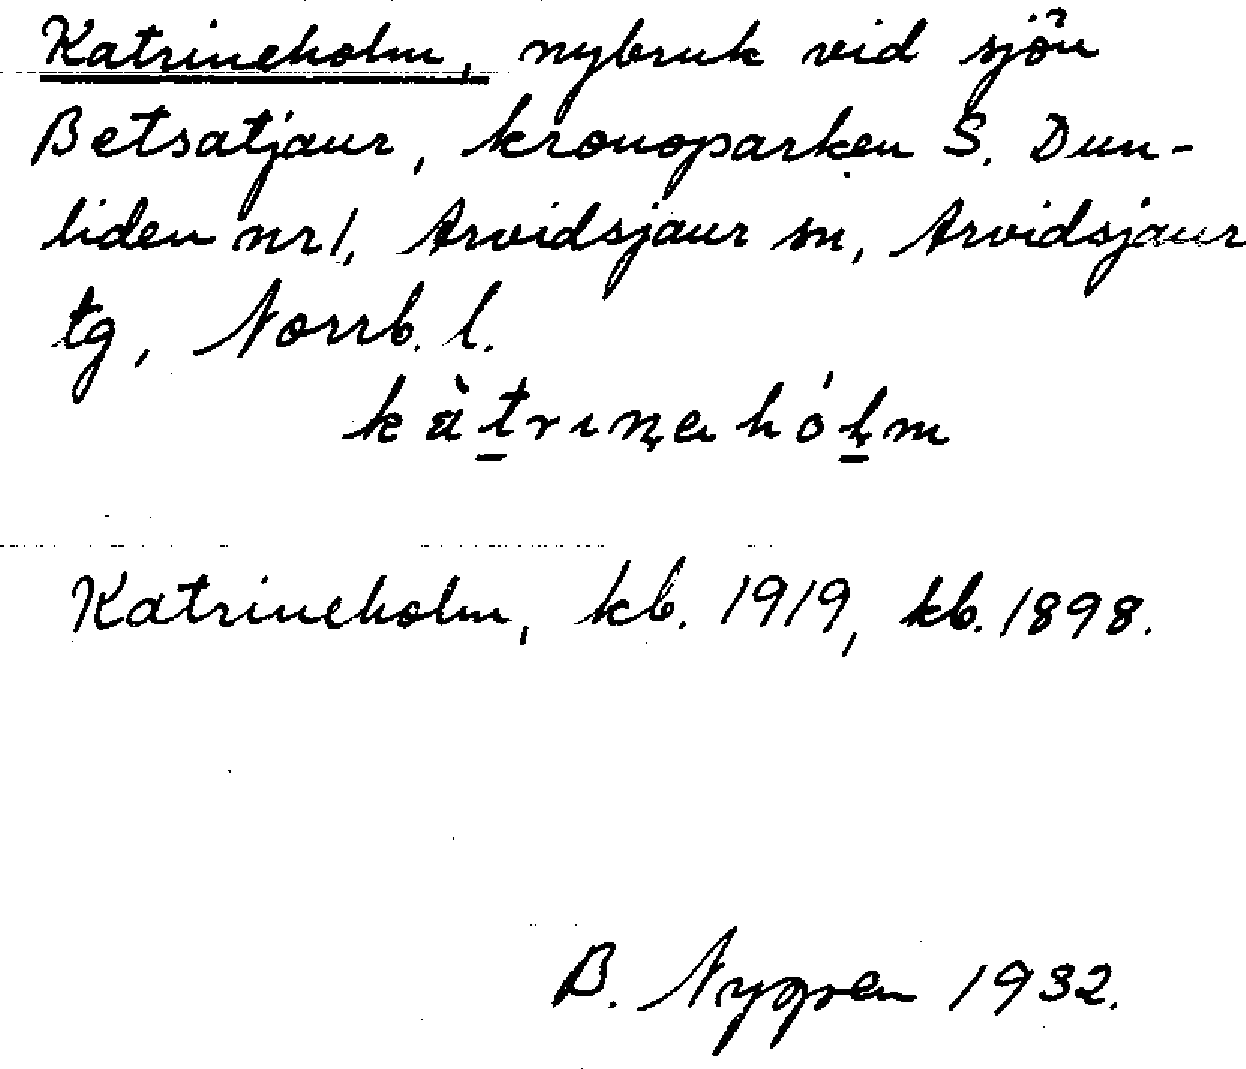 Katrineholm, nybruk vid sjön
Betsatjaur, kronoparken S. Dun-
liden nr 1, Arvidsjaur sn, Arvidsjaur
tg, Norrb. l.
kàtrinehólm
Katrineholm, kb. 1919, kb. 1898.
B. Nygren 1932.